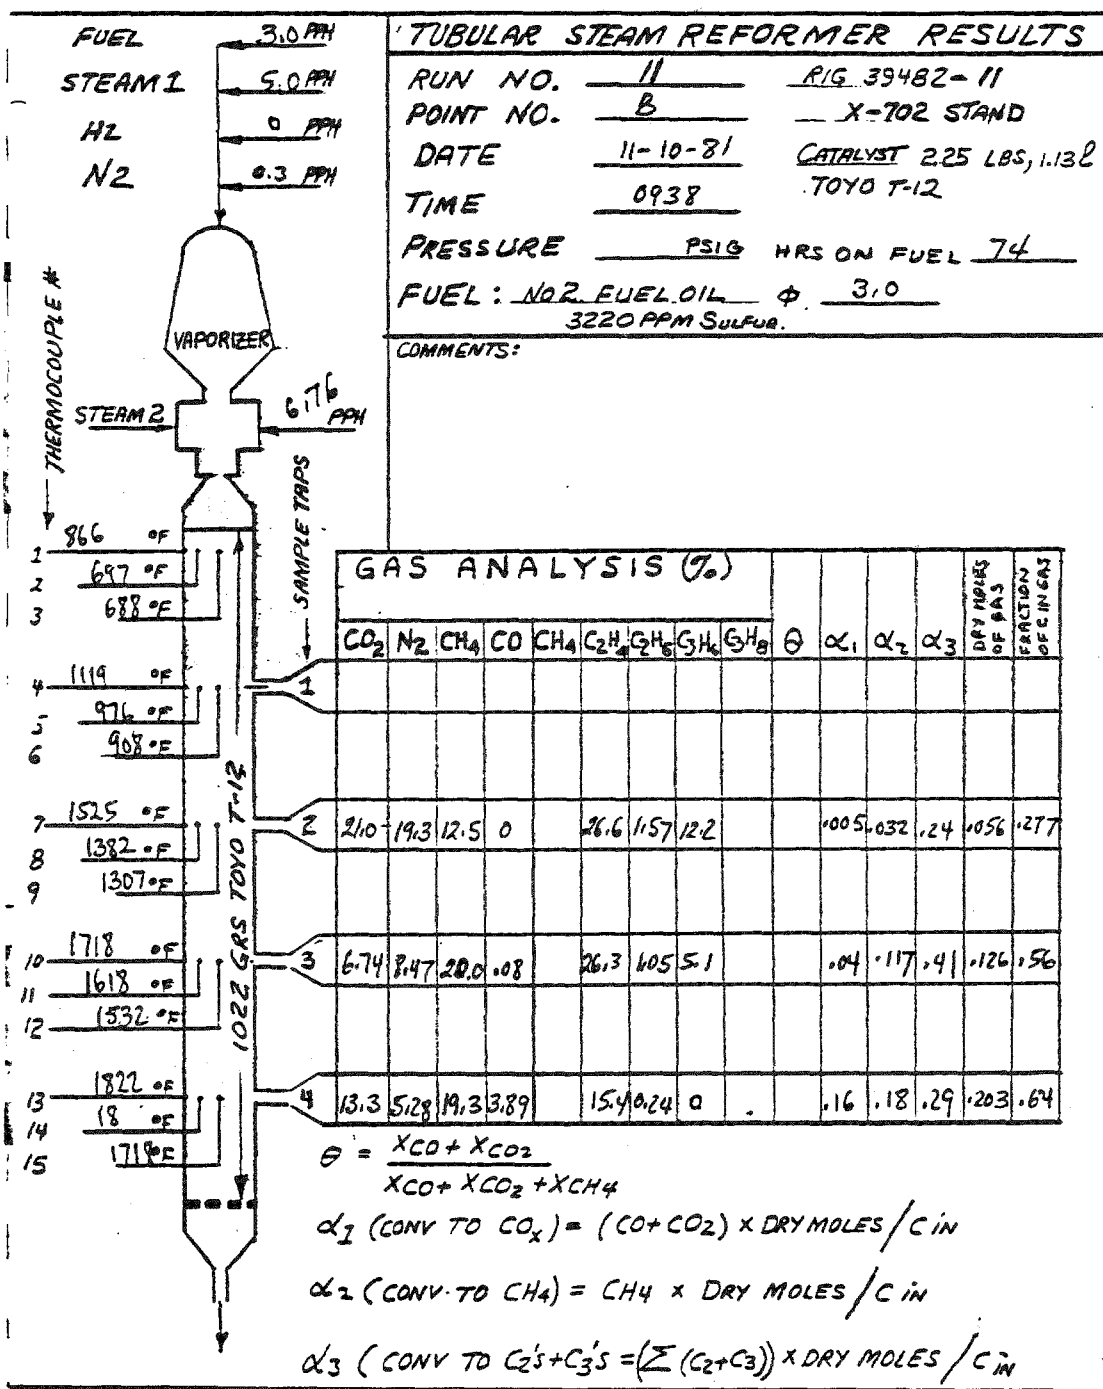 FUEL 3.0 PPH
STEAM 1 5.0 PPH
H2 0 PPH
N2 0.3 PPH
TUBULAR STEAM REFORMER RESULTS
RUN NO. 11 RIG 39482-11
POINT NO. B X-702 STAND
DATE 11-10-81 CATALYST 2.25 LBS, 1.13l
TIME 0938 TOYO T-12
PRESSURE PSIG HRS ON FUEL 74
FUEL: NO2 FUEL OIL Φ 3.0
3220 PPM SULFUR.
COMMENTS:
VAPORIZER
STEAM 2 6.76 PPH
THERMOCOUPLE #
SAMPLE TAPS
1022 GRS TOYO T-12
1 866 °F
2 697 °F
3 688 °F
4 1119 °F
5 976 °F
6 908 °F
7 1525 °F
8 1382 °F
9 1307 °F
10 1718 °F
11 1618 °F
12 1532 °F
13 1822 °F
14 18 °F
15 1719 °F
GAS ANALYSIS (%)
CO2 N2 CH4 CO CH4 C2H4 C2H6 C3H6 C3H8 θ α1 α2 α3 DRY MOLES OF GAS FRACTION OF C IN GAS
1
2 21.0 19.3 12.5 0 26.6 1.57 12.2 .005 .032 .24 .056 .277
3 6.74 8.47 20.0 .08 26.3 1.05 5.1 .04 .117 .41 .126 .56
4 13.3 5.28 19.3 3.89 15.4 0.24 0 .16 .18 .29 .203 .64
θ = XCO + XCO2
XCO + XCO2 + XCH4
α1 (CONV TO COx) = (CO+CO2) × DRY MOLES / C IN
α2 (CONV. TO CH4) = CH4 × DRY MOLES / C IN
α3 ( CONV TO C2's+C3's = (Σ (C2+C3)) × DRY MOLES / C IN